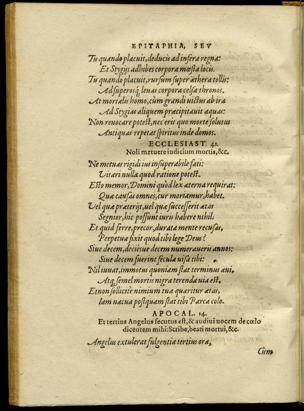 EPITAPHIA, SEV
Tu quando placuit, deducis ad infera regna:
Et Stygijs adhibes corpora mœsta locis.
Tu quando placuit, rursum super æthera tollis:
Ad superosq́; leuas corpora celsa thronos.
At mortalis homo, cum grandi victus ab ira
Ad Stygias aliquem præcipitauit aquas:
Non reuocare potest, nec erit quo morte solutus
Antiquas repetat spiritus inde domos.
ECCLESIAST. 41.
Noli metuere iudicium mortis, &c.
Ne metuas rigidi ius insuperabile fati:
Vitari nulla quod ratione potest.
Esto memor, Domini quòd lex æterna requirat:
Qua causas omnes, cur moriamur, habet.
Vel qua præterijt, uel qua successerit ætas
Segnior, hic possunt iuris habere nihil.
Et quid ferre, precor, durata mente recusas,
Perpetua fixit quod tibi lege Deus?
Siue decem, deciesue decem numeraueris annos:
Siue decem fuerint secula uisa tibi:
Nil iuuat, immotus quoniam stat terminus æui,
Atq́ semel mortis nigra terenda uia est.
Et non sollicitè nimium tua quæritur ætas,
Iam uacua postquam stat tibi Parca colo.
APOCAL. 14.
Et tertius Angelus secutus est, & audiui uocem de cœlo
dicentem mihi: Scribe, beati mortui, &c.
Angelus extulerat fulgentia tertius ora,
Cùm